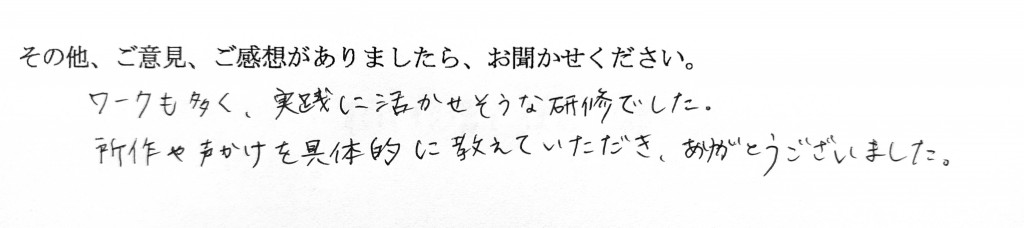 その他、ご意見、ご感想がありましたら、お聞かせください。
ワークも多く、実践に活かせそうな研修でした。
所作や声かけを具体的に教えていただき、ありがとうございました。